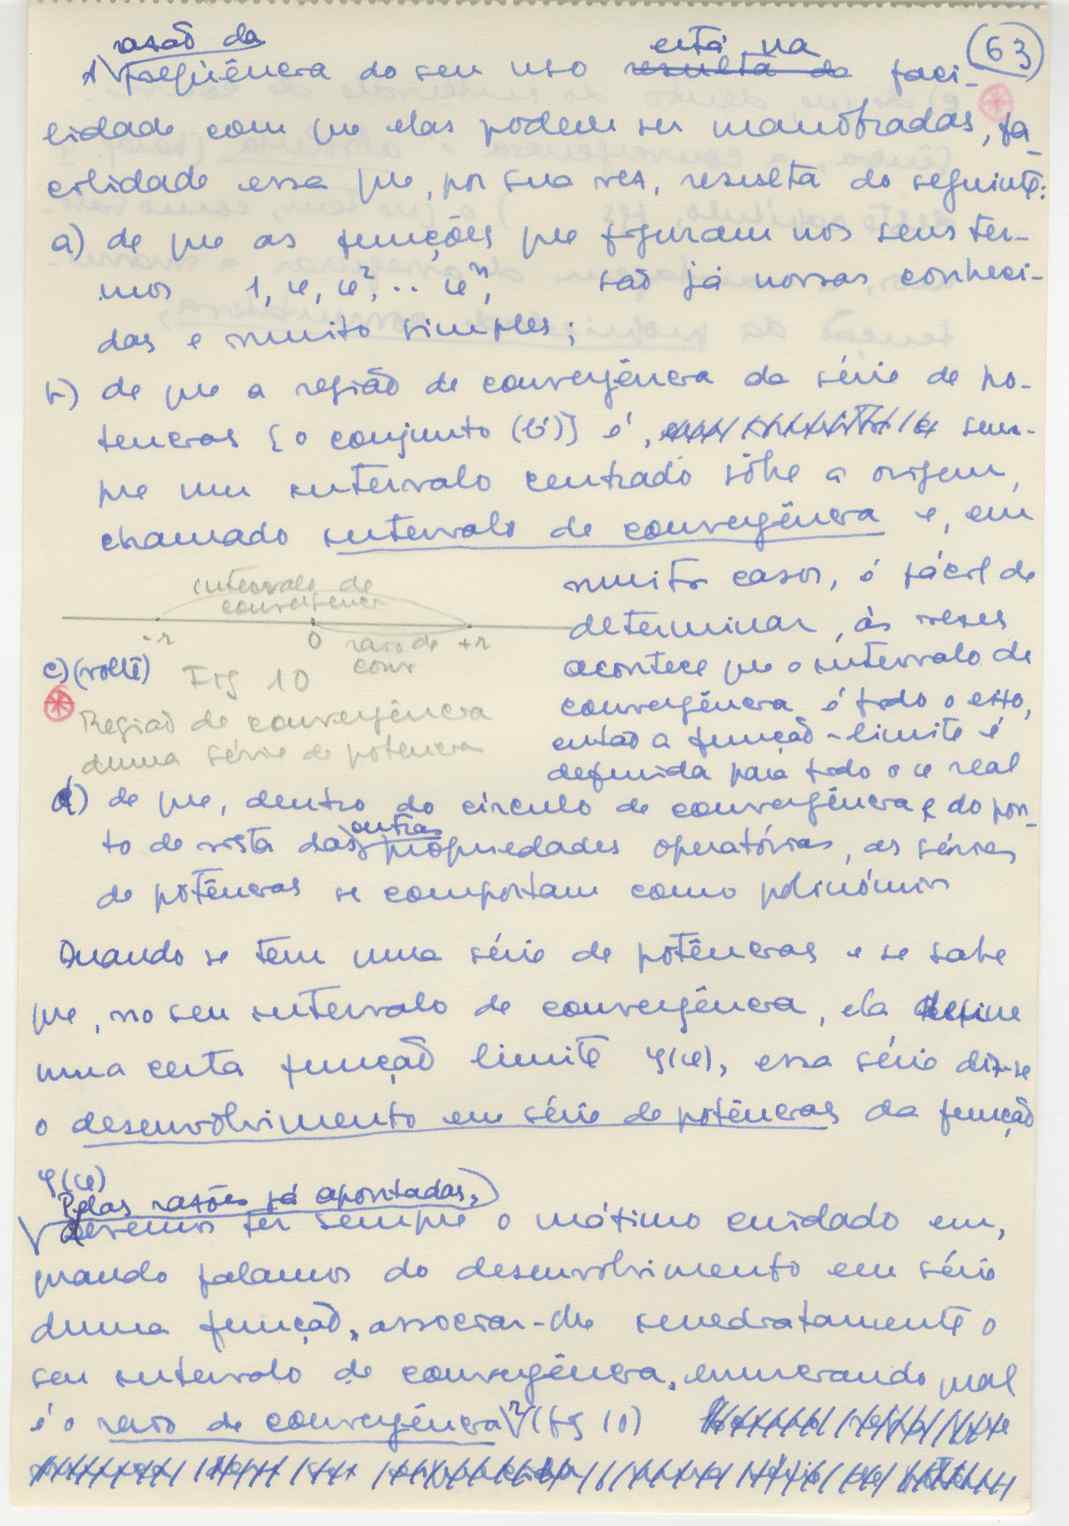 63
razão da está na
A freqüência do seu uso resulta da faci-
lidade com que elas podem ser manobradas, fa-
cilidade essa que, por sua vez, resulta do seguinte:
a) de que as funções que figuram nos seus ter-
mos 1, x, x², ·· xⁿ, são já nossas conheci-
das e muito simples;
b) de que a região de convergência da série de po-
tências [o conjunto (b')] é, sem-
pre um intervalo centrado sôbre a origem,
chamado intervalo de convergência e, em
muitos casos, é fácil de
determinar, às vezes
acontece que o intervalo de
convergência é todo o eixo,
então a função-limite é
definida para todo o x real
intervalo de
convergência
-r 0 raio de +r
conv
c) (volte) Fig 10
Região de convergência
duma série de potência
d) de que, dentro do círculo de convergência e do pon-
outras
to de vista das propriedades operatórias, as séries
de potências se comportam como polinómios
Quando se tem uma série de potências e se sabe
que, no seu intervalo de convergência, ela define
uma certa função limite φ(x), essa série diz-se
o desenvolvimento em série de potências da função
φ(x)
Pelas razões já apontadas,
devemos ter sempre o máximo cuidado em,
quando falamos do desenvolvimento em série
duma função, associar-lhe imediatamente o
seu intervalo de convergência, enunciando qual
é o raio de convergência r (fig 10)